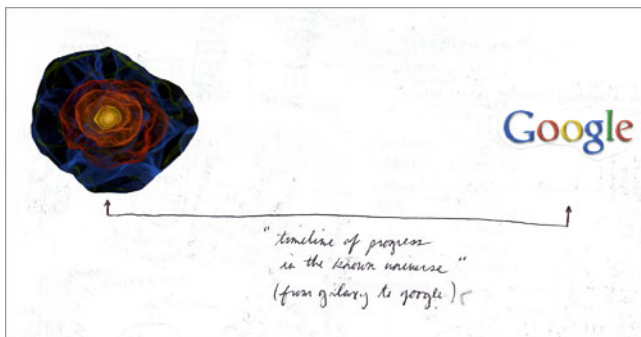 Google
"timeline of progress
in the known universe"
(from galaxy to google)